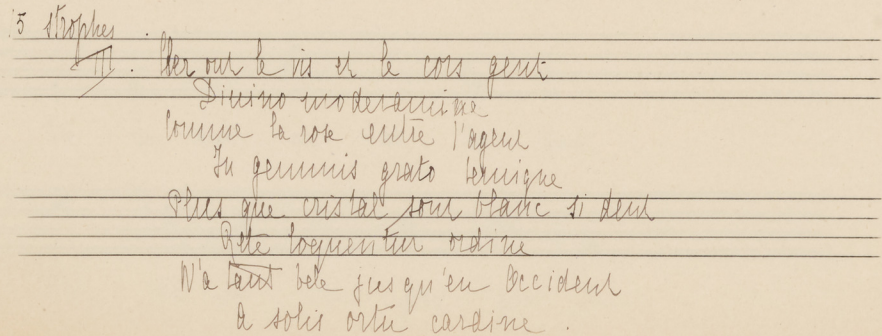 5 strophes
III. Cler out le vis et le cors gent
Divino moderamine
Comme la rose entre l'agent
In gemmis grato
Plus que cristal sont blanc si dent
Rete loquentur ordine
N'a tant bele jusqu'en Occident
A solis ortu cardine.